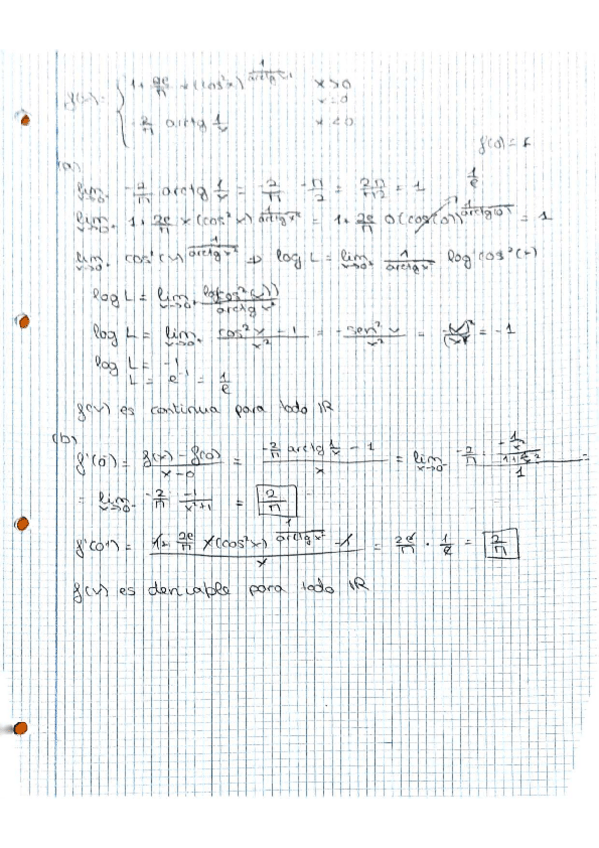 f(x) = { 1 + 2e/π x (cos²x)^(1/arctg x²) x > 0
x = 0
-2/π arctg 1/x x < 0
f(0) = 1
(a)
lim x→0⁻ -2/π arctg 1/x = -2/π · -π/2 = 2π/π2 = 1
1/e
lim x→0⁺ 1 + 2e/π x (cos²x)^(1/arctg x²) = 1 + 2e/π 0 (cos(0))^(1/arctg 0) = 1
lim x→0⁺ cos²(x)^(1/arctg x²) ⇒ log L = lim x→0⁺ 1/arctg x² log cos²(x)
log L = lim x→0⁺ log(cos²(x))/arctg x²
log L = lim x→0⁺ cos²x - 1/x² = -sen²x/x² = -(x)²/(x)² = -1
log L = -1
L = e⁻¹ = 1/e
f(x) es continua para todo IR
(b)
f'(0⁻) = f(x) - f(0)/x - 0 = -2/π arctg 1/x - 1/x = lim x→0⁻ -2/π ·
= lim x→0⁻ -2/π · -1/x²+1 = 2/π
f'(0⁺) = 1 + 2e/π x (cos²x)^(1/arctg x²) - 1/x = 2e/π · 1/e = 2/π
f(x) es derivable para todo IR